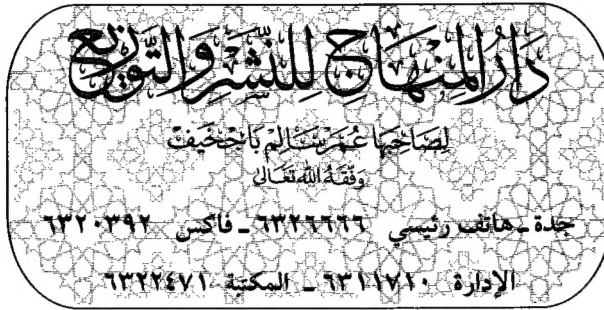 دَارُ المِنْهَاجِ لِلنَّشْرِ وَالتَّوْزِيعِ
لِصَاحِبِهَا عُمَر سَالِم بَاجخَيف
وَفَّقَهُ اللهُ تَعَالَى
جدة ـ هاتف رئيسي ٦٣٢٦٦٦٦ ـ فاكس ٦٣٢٠٣٩٢
الإدارة ٦٣١١٧١٠ ـ المكتبة ٦٣٢٢٤٧١